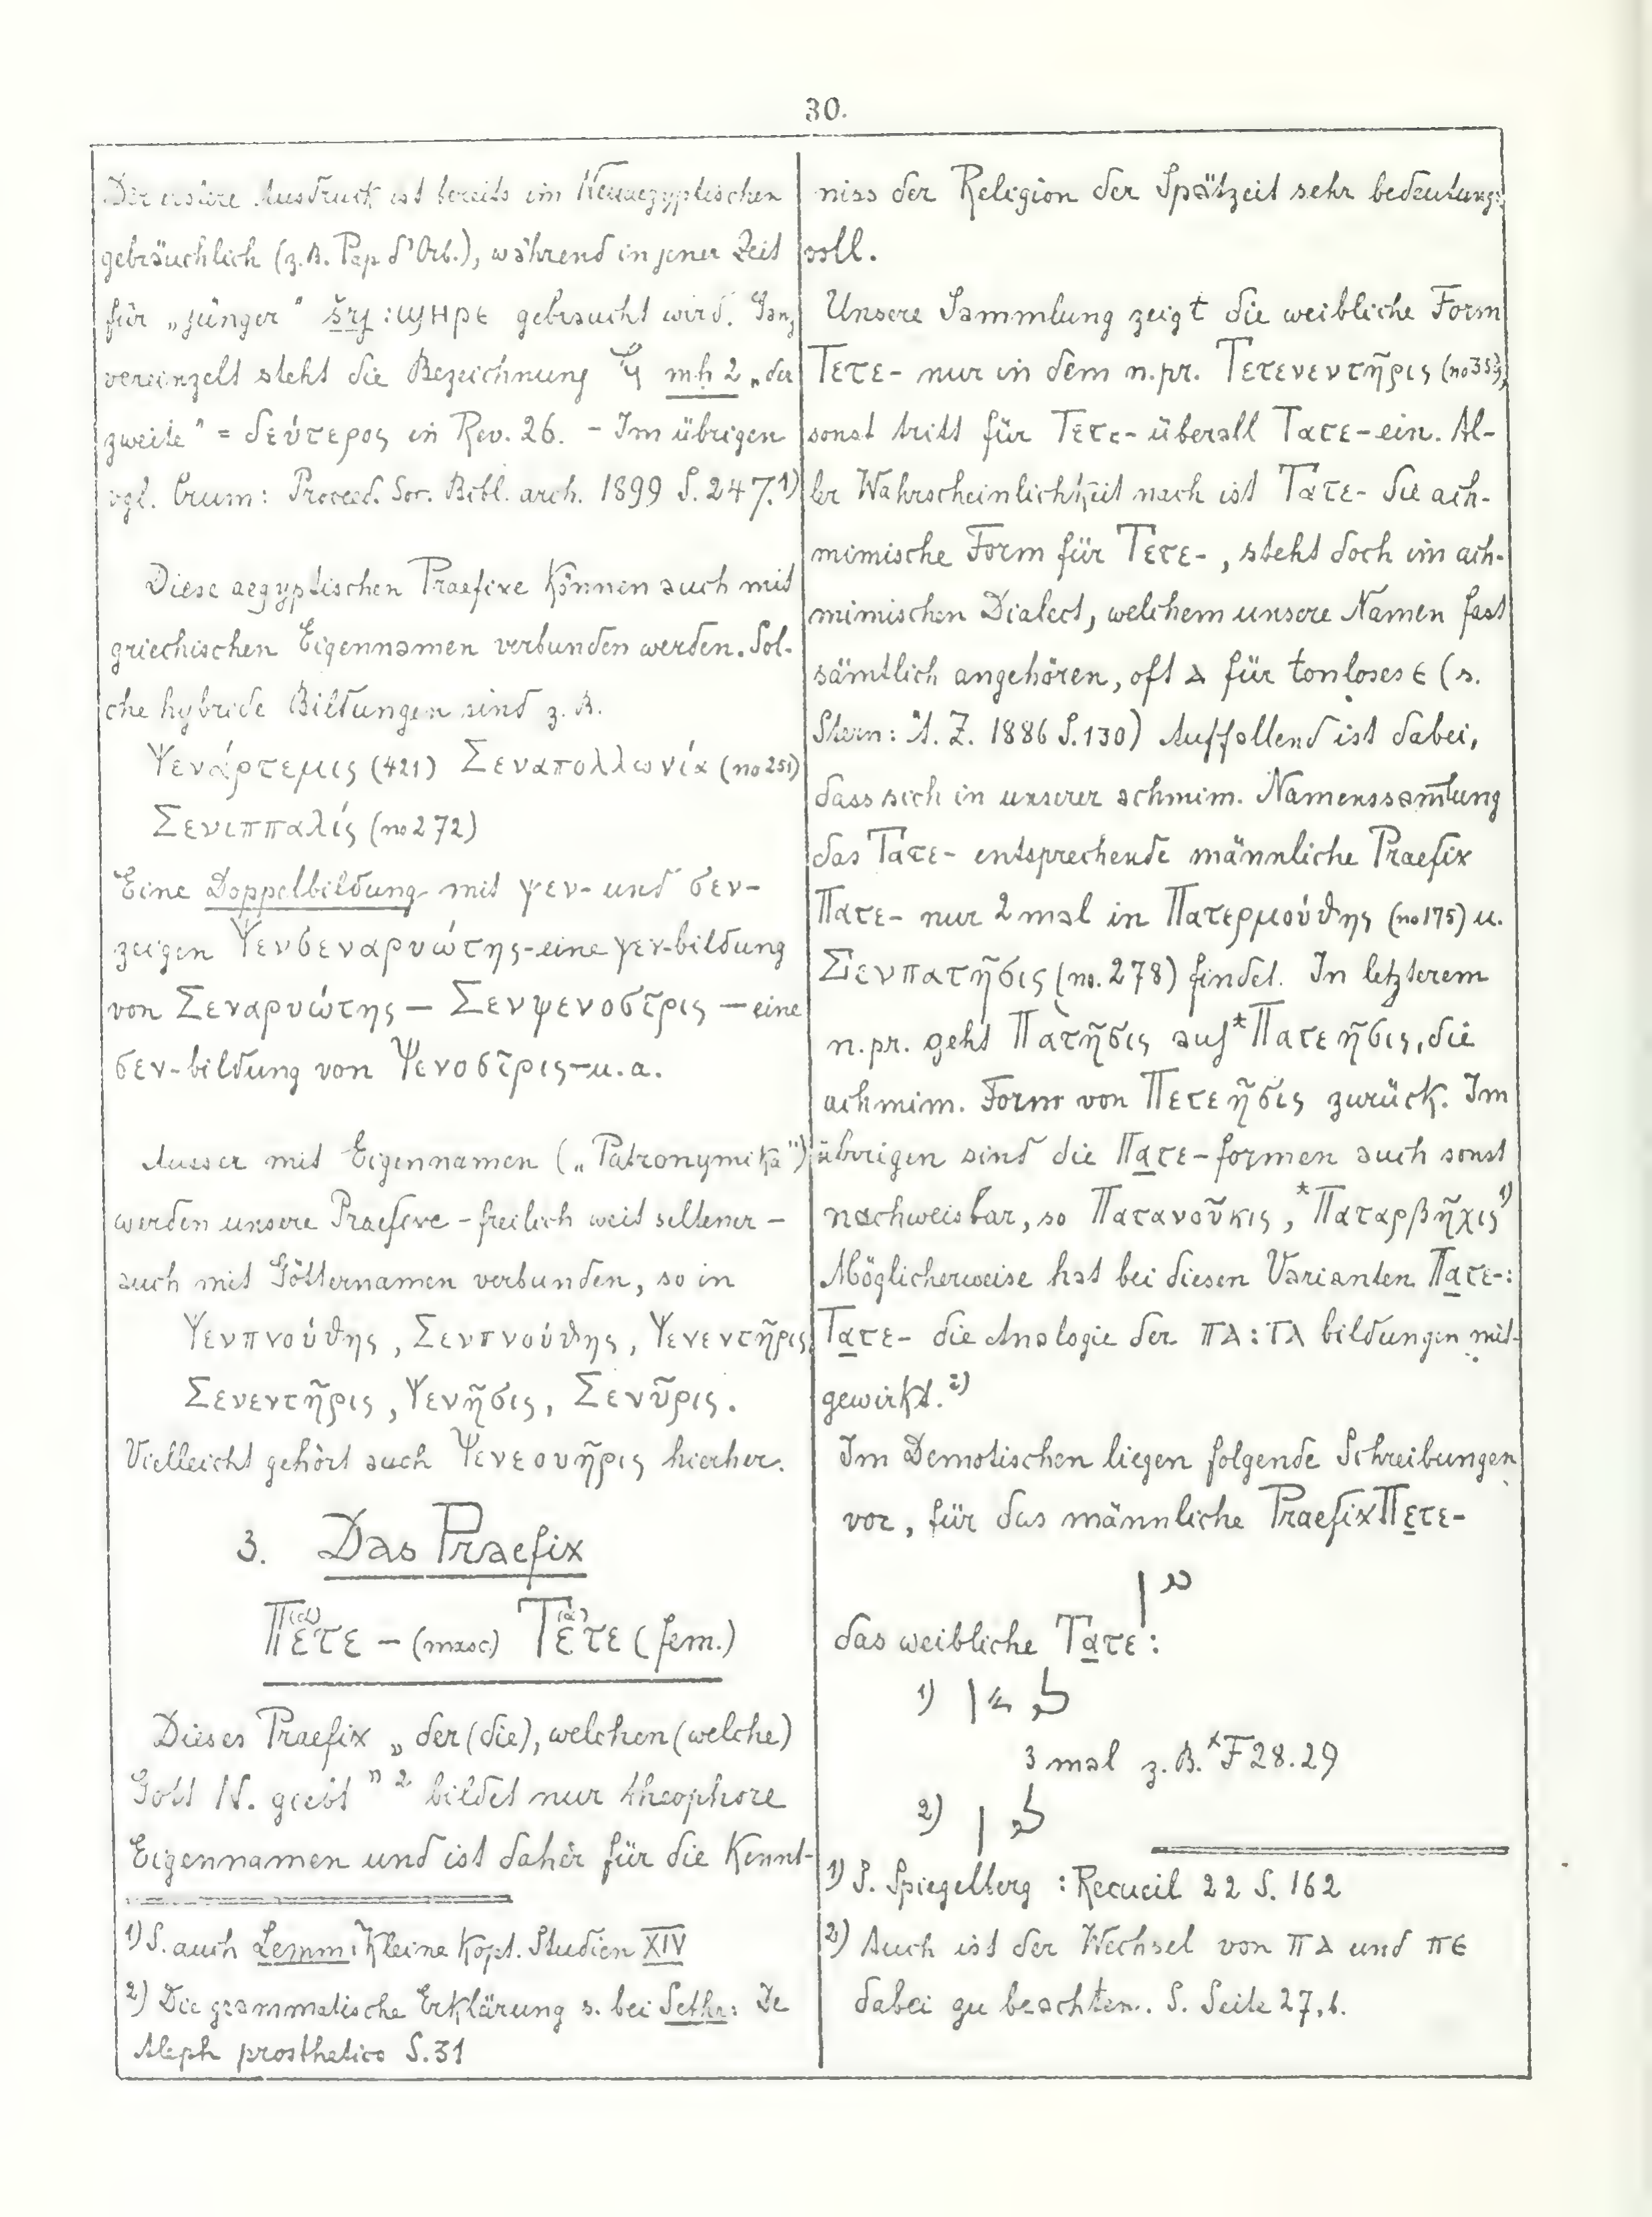 30.
Der erstere Ausdruck ist bereits im Neuaegyptischen
gebräuchlich (z.B. Pap d'Orb.), während in jener Zeit
für „jünger“ šrj : ϢΗΡΕ gebraucht wird. Ganz
vereinzelt steht die Bezeichnung mḥ 2 „der
zweite“ = δεύτερος in Rev. 26. - Im übrigen
vgl. Crum: Proceed. Soc. Bibl. arch. 1899 S. 247.1)
Diese aegyptischen Praefixe können auch mit
griechischen Eigennamen verbunden werden. Sol-
che hybride Bildungen sind z.B.
Ψενάρτεμις (421) Σεναπολλωνία (no 251)
Σενιππαλίς (no 272)
Eine Doppelbildung mit ψεν- und σεν-
zeigen Ψενσεναρυώτης - eine ψεν-bildung
von Σεναρυώτης — Σενψενοσῖρις — eine
σεν-bildung von Ψενοσῖρις - u.a.
Ausser mit Eigennamen („Patronymika“)
werden unsere Praefixe - freilich weit seltener -
auch mit Götternamen verbunden, so in
Ψενπνούθης, Σενπνούθης, Ψενεντῆρις
Σενεντῆρις, Ψενῆσις, Σενῦρις.
Vielleicht gehört auch Ψενεουῆρις hierher.
3. Das Praefix
Πε(α)τε - (masc) Τε(α)τε (fem.)
Dieses Praefix „der (die), welchen (welche)
Gott N. giebt“ 2 bildet nur theophore
Eigennamen und ist daher für die Kennt-
1) S. auch Lemm: Kleine Kopt. Studien XIV
2) Die grammatische Erklärung s. bei Sethe: De
Aleph prosthetico S. 31
niss der Religion der Spätzeit sehr bedeutungs-
voll.
Unsere Sammlung zeigt die weibliche Form
Τετε- nur in dem n.pr. Τετενεντῆρις
sonst tritt für Τετε- überall Τατε- ein. Al-
ler Wahrscheinlichkeit nach ist Τατε- die ach-
mimische Form für Τετε-, steht doch im ach-
mimischen Dialect, welchem unsere Namen fast
sämtlich angehören, oft ⲁ für tonloses ⲉ (s.
Stern: A. Z. 1886 S. 130) Auffallend ist dabei,
dass sich in unserer achmim. Namenssamlung
das Τατε- entsprechende männliche Praefix
Πατε- nur 2 mal in Πατερμούθης (no 175) u.
Σενπατῆσις (no. 278) findet. In letzterem
n.pr. geht Πατῆσις auf *Πατεῆσις, die
achmim. Form von Πετεῆσις zurück. Im
übrigen sind die Πατε-formen auch sonst
nachweisbar, so Πατανοῦκις, *Παταρβῆχις1)
Möglicherweise hat bei diesen Varianten Πατε-:
Τατε- die Analogie der ⲡⲁ : ⲧⲁ bildungen mit-
gewirkt.2)
Im Demotischen liegen folgende Schreibungen
vor, für das männliche Praefix Πετε-
das weibliche Τατε:
1)
3 mal z.B. *F 28.29
2)
1) S. Spiegelberg : Recueil 22 S. 162
2) Auch ist der Wechsel von ⲡⲁ und ⲡⲉ
dabei zu beachten. S. Seite 27, b.